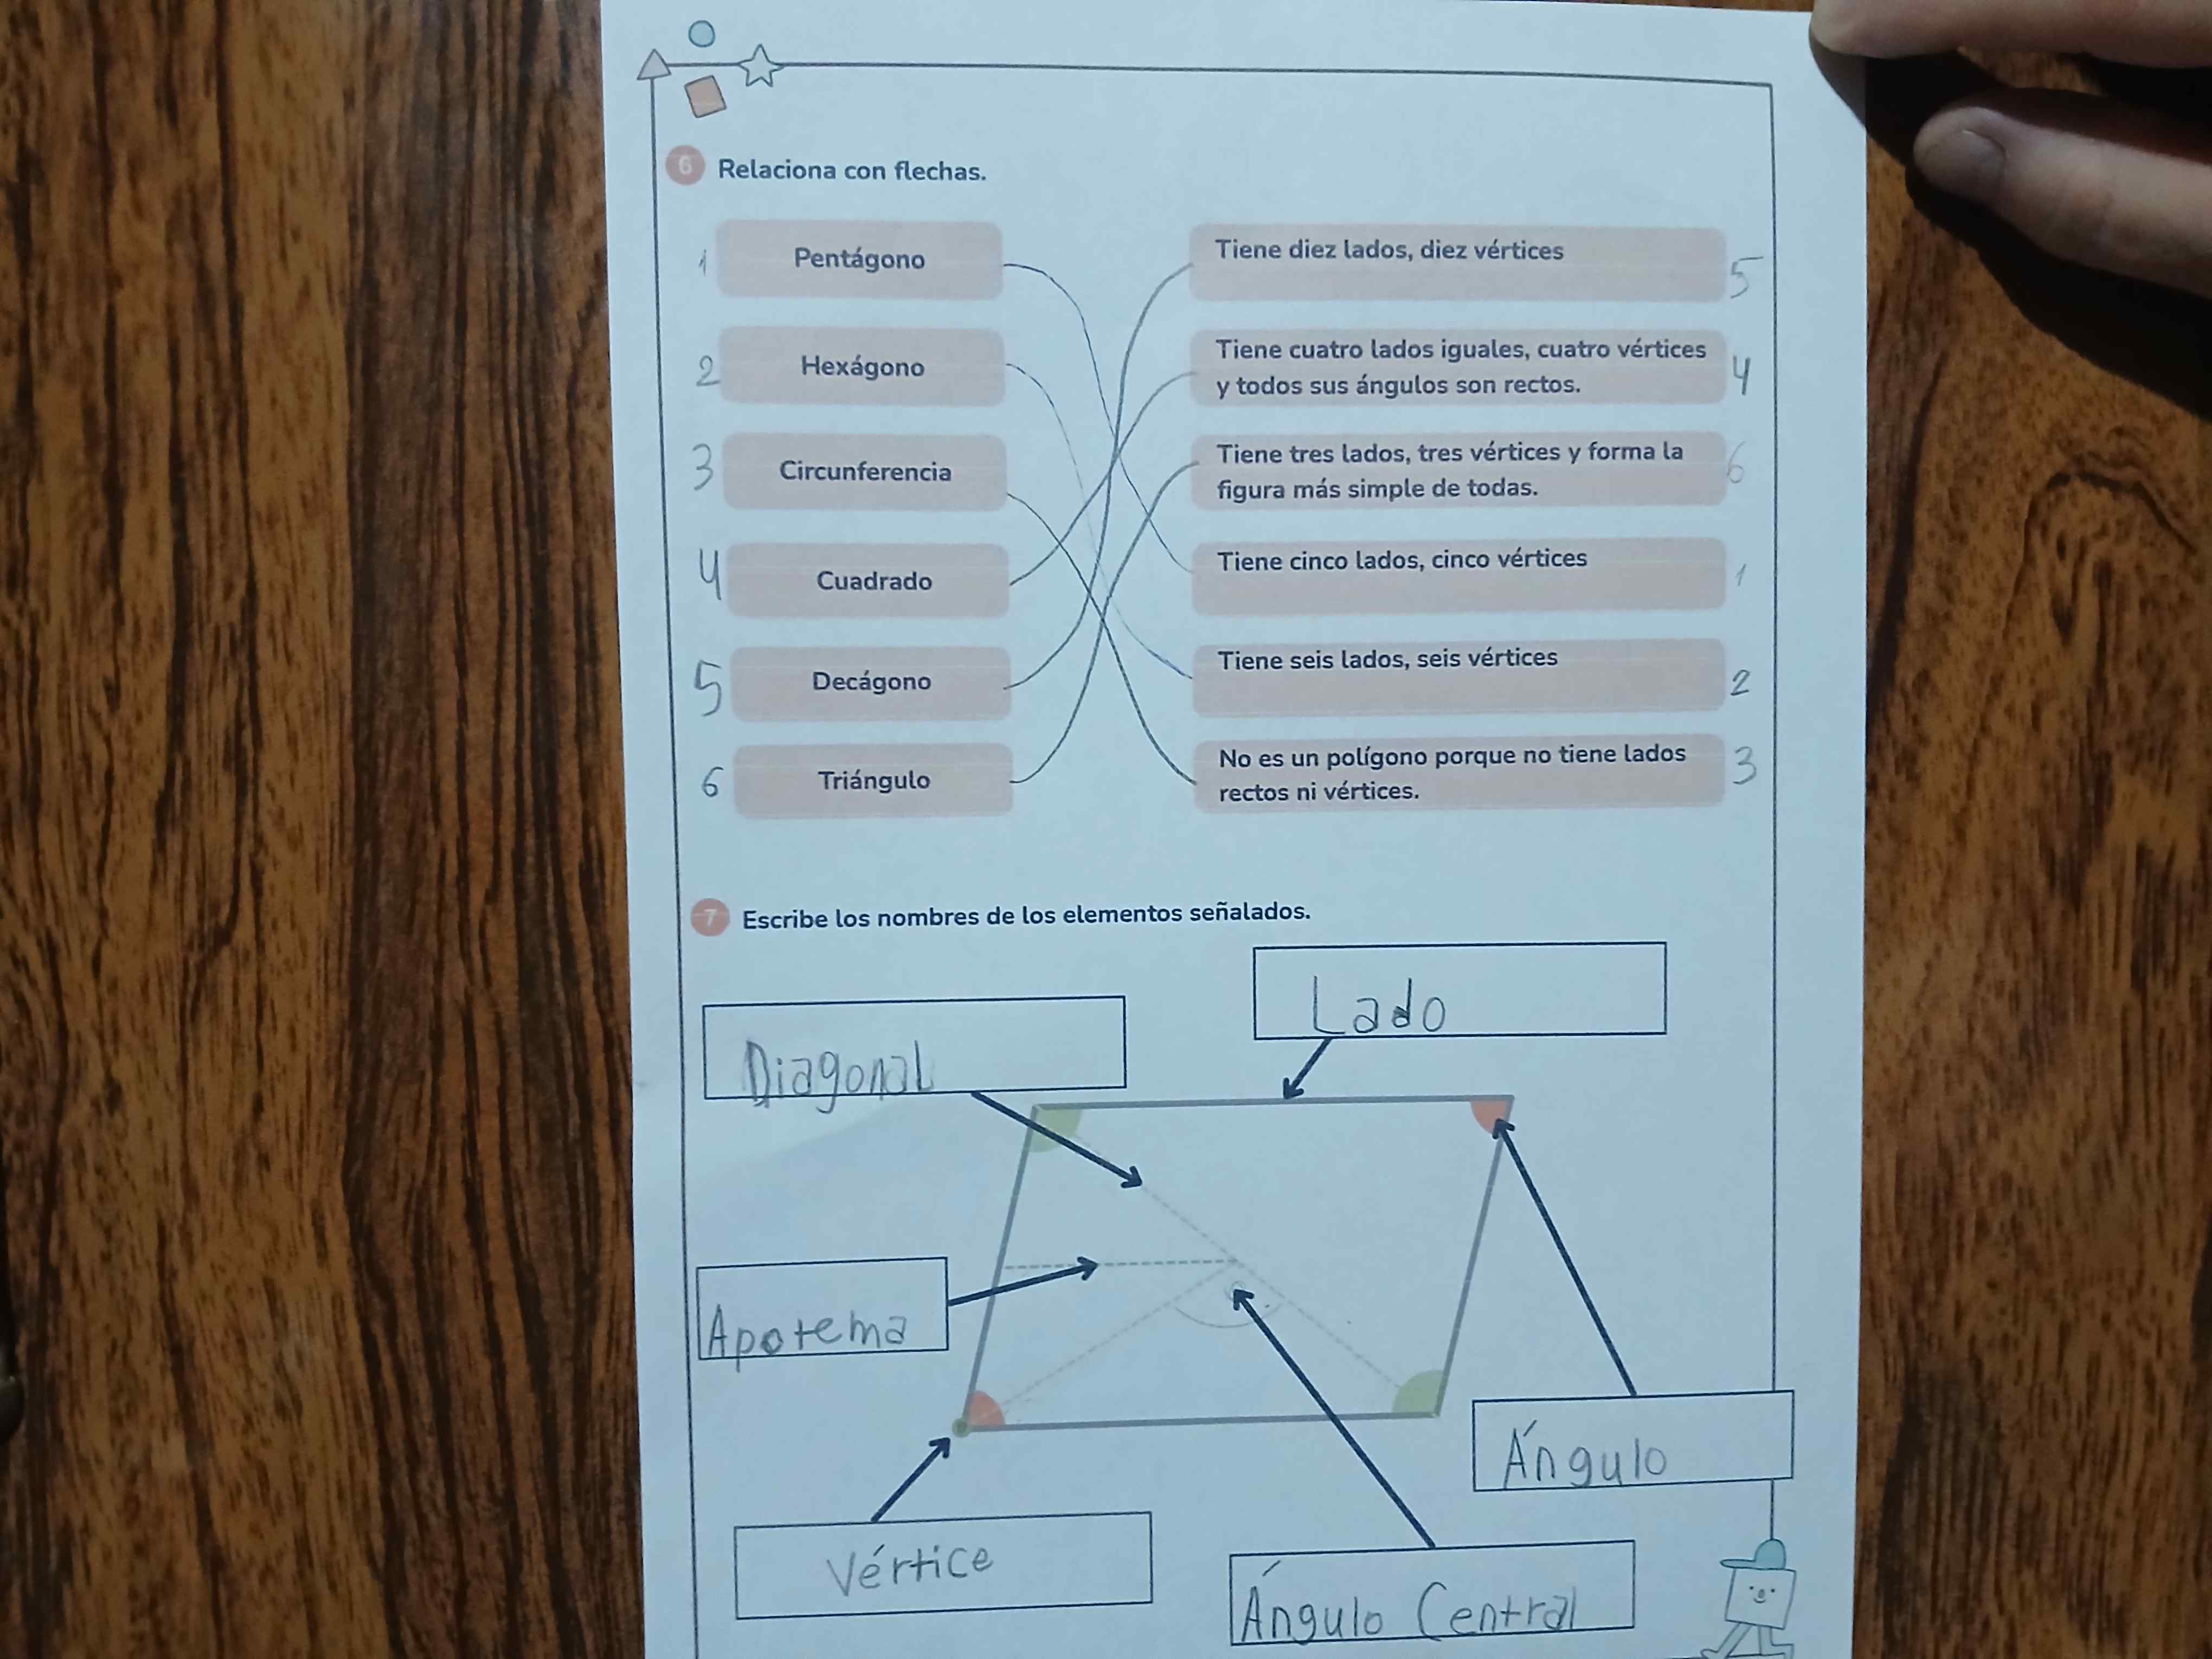 6 Relaciona con flechas.
1 Pentágono
Tiene diez lados, diez vértices 5
2 Hexágono
Tiene cuatro lados iguales, cuatro vértices
y todos sus ángulos son rectos. 4
3 Circunferencia
Tiene tres lados, tres vértices y forma la
figura más simple de todas. 6
4 Cuadrado
Tiene cinco lados, cinco vértices 1
5 Decágono
Tiene seis lados, seis vértices 2
6 Triángulo
No es un polígono porque no tiene lados
rectos ni vértices. 3
7 Escribe los nombres de los elementos señalados.
Lado
Diagonal
Apotema
Ángulo
Vértice
Ángulo Central